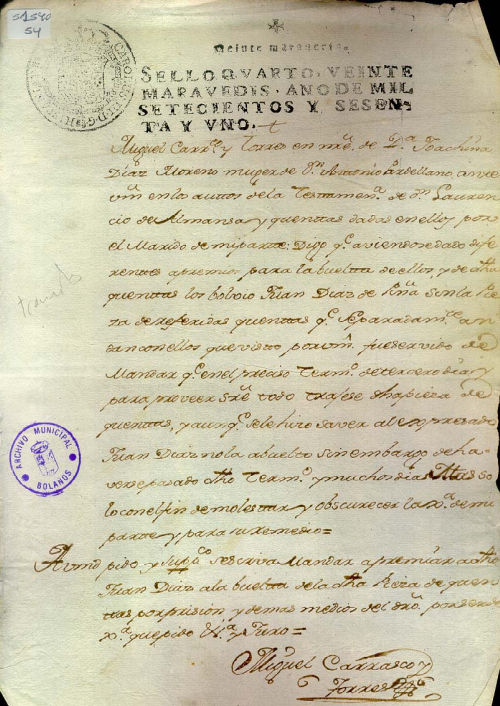 S/1540
54
Veinte maravedis.
SELLO QVARTO, VEINTE
MARAVEDIS, AÑO DE MIL
SETECIENTOS Y SESEN-
TA Y VNO.
Miguel Carr.co y Torres en nre. de D.a Joachina
Diaz Moreno muger de D.n Antonio Ardellano, ante
vm en los autos de la Testament.a de D.n Lauren
cio de Almansa y quentas dadas en ellos por
el Marido de mi parte: Digo q.e aviendose dado dife
rentes apremios para la buelta de ellos y de dha
quentas los bolvio Juan Diaz de sin la Pie
za de referidas quentas q.e separadam.te an
dan con ellos que visto por vm. fue servido de
Mandar q.e en el preciso term.o de tercero dia y
para proveer sre todo trajese dha pieza de
quentas, y aunq.e se le hizo saver al expresado
Juan Diaz no la a buelto sin embargo de ha
ver pasado dho Term.o y muchos dias mas so
lo con el fin de molestar y obscurecer la de mi
parte y para su remedio=
A vmd pido y supp.co se sirva Mandar apremiar a dho
Juan Diaz a la buelta de la dha Pieza de quen
tas por prision y demas medios del dro. por ser de
que pido Y Juro=
Miguel Carrasco y
Torres
ARCHIVO MUNICIPAL
BOLAÑOS